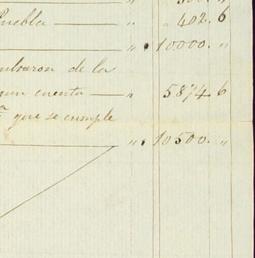 Puebla — " " 402. 6
". 10000. "
de la
cuenta — " 5874 6
que se cumple
". 10500. "